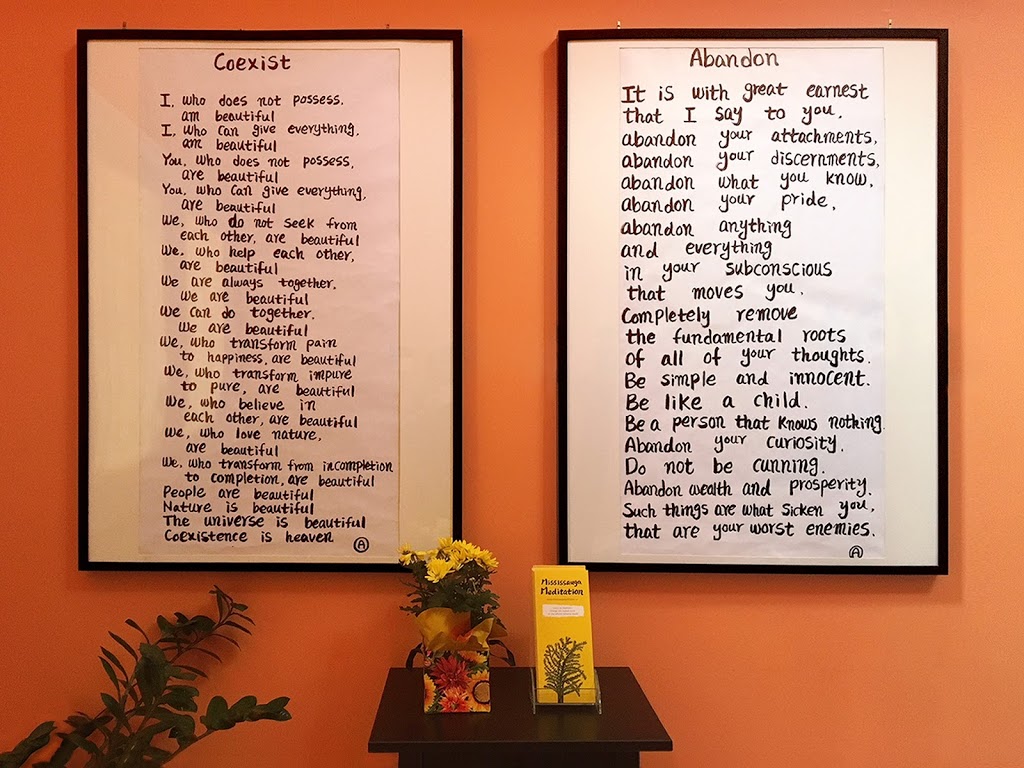 Coexist
I, who does not possess.
am beautiful
I, who can give everything,
am beautiful
You, who does not possess,
are beautiful
You, who can give everything,
are beautiful
We, who do not seek from
each other, are beautiful
We, who help each other,
are beautiful
We are always together.
We are beautiful
We can do together.
We are beautiful
We, who transform pain
to happiness, are beautiful
We, who transform impure
to pure, are beautiful
We, who believe in
each other, are beautiful
We, who love nature,
are beautiful
We, who transform from incompletion
to completion, are beautiful
People are beautiful
Nature is beautiful
The universe is beautiful
Coexistence is heaven
A
Abandon
It is with great earnest
that I say to you,
abandon your attachments,
abandon your discernments,
abandon what you know,
abandon your pride,
abandon anything
and everything
in your subconscious
that moves you.
Completely remove
the fundamental roots
of all of your thoughts.
Be simple and innocent.
Be like a child.
Be a person that knows nothing.
Abandon your curiosity.
Do not be cunning.
Abandon wealth and prosperity.
Such things are what sicken you,
that are your worst enemies.
A
Mississauga
Meditation